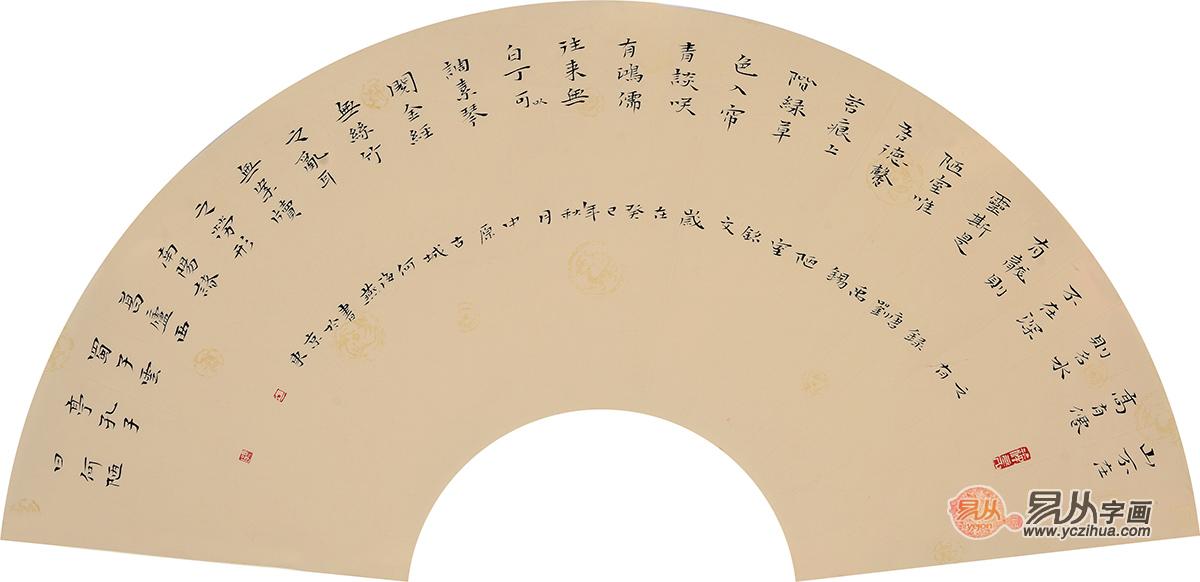 山不在
高有僊
則名水
不在深
有龍則
靈斯是
陋室唯
吾德馨
苔痕上
階綠草
色入帘
青談咲
有鴻儒
往来無
白丁可以
調素琴
閱金經
無絲竹
之亂耳
無案牘
之勞形
南陽諸
葛廬西
蜀子雲
亭孔子
曰何陋
之有
錄唐劉禹錫陋室銘文歲在癸巳年秋月中原古城何海燕書於京東
易从
yczjon
易从字画
www.yczihua.com